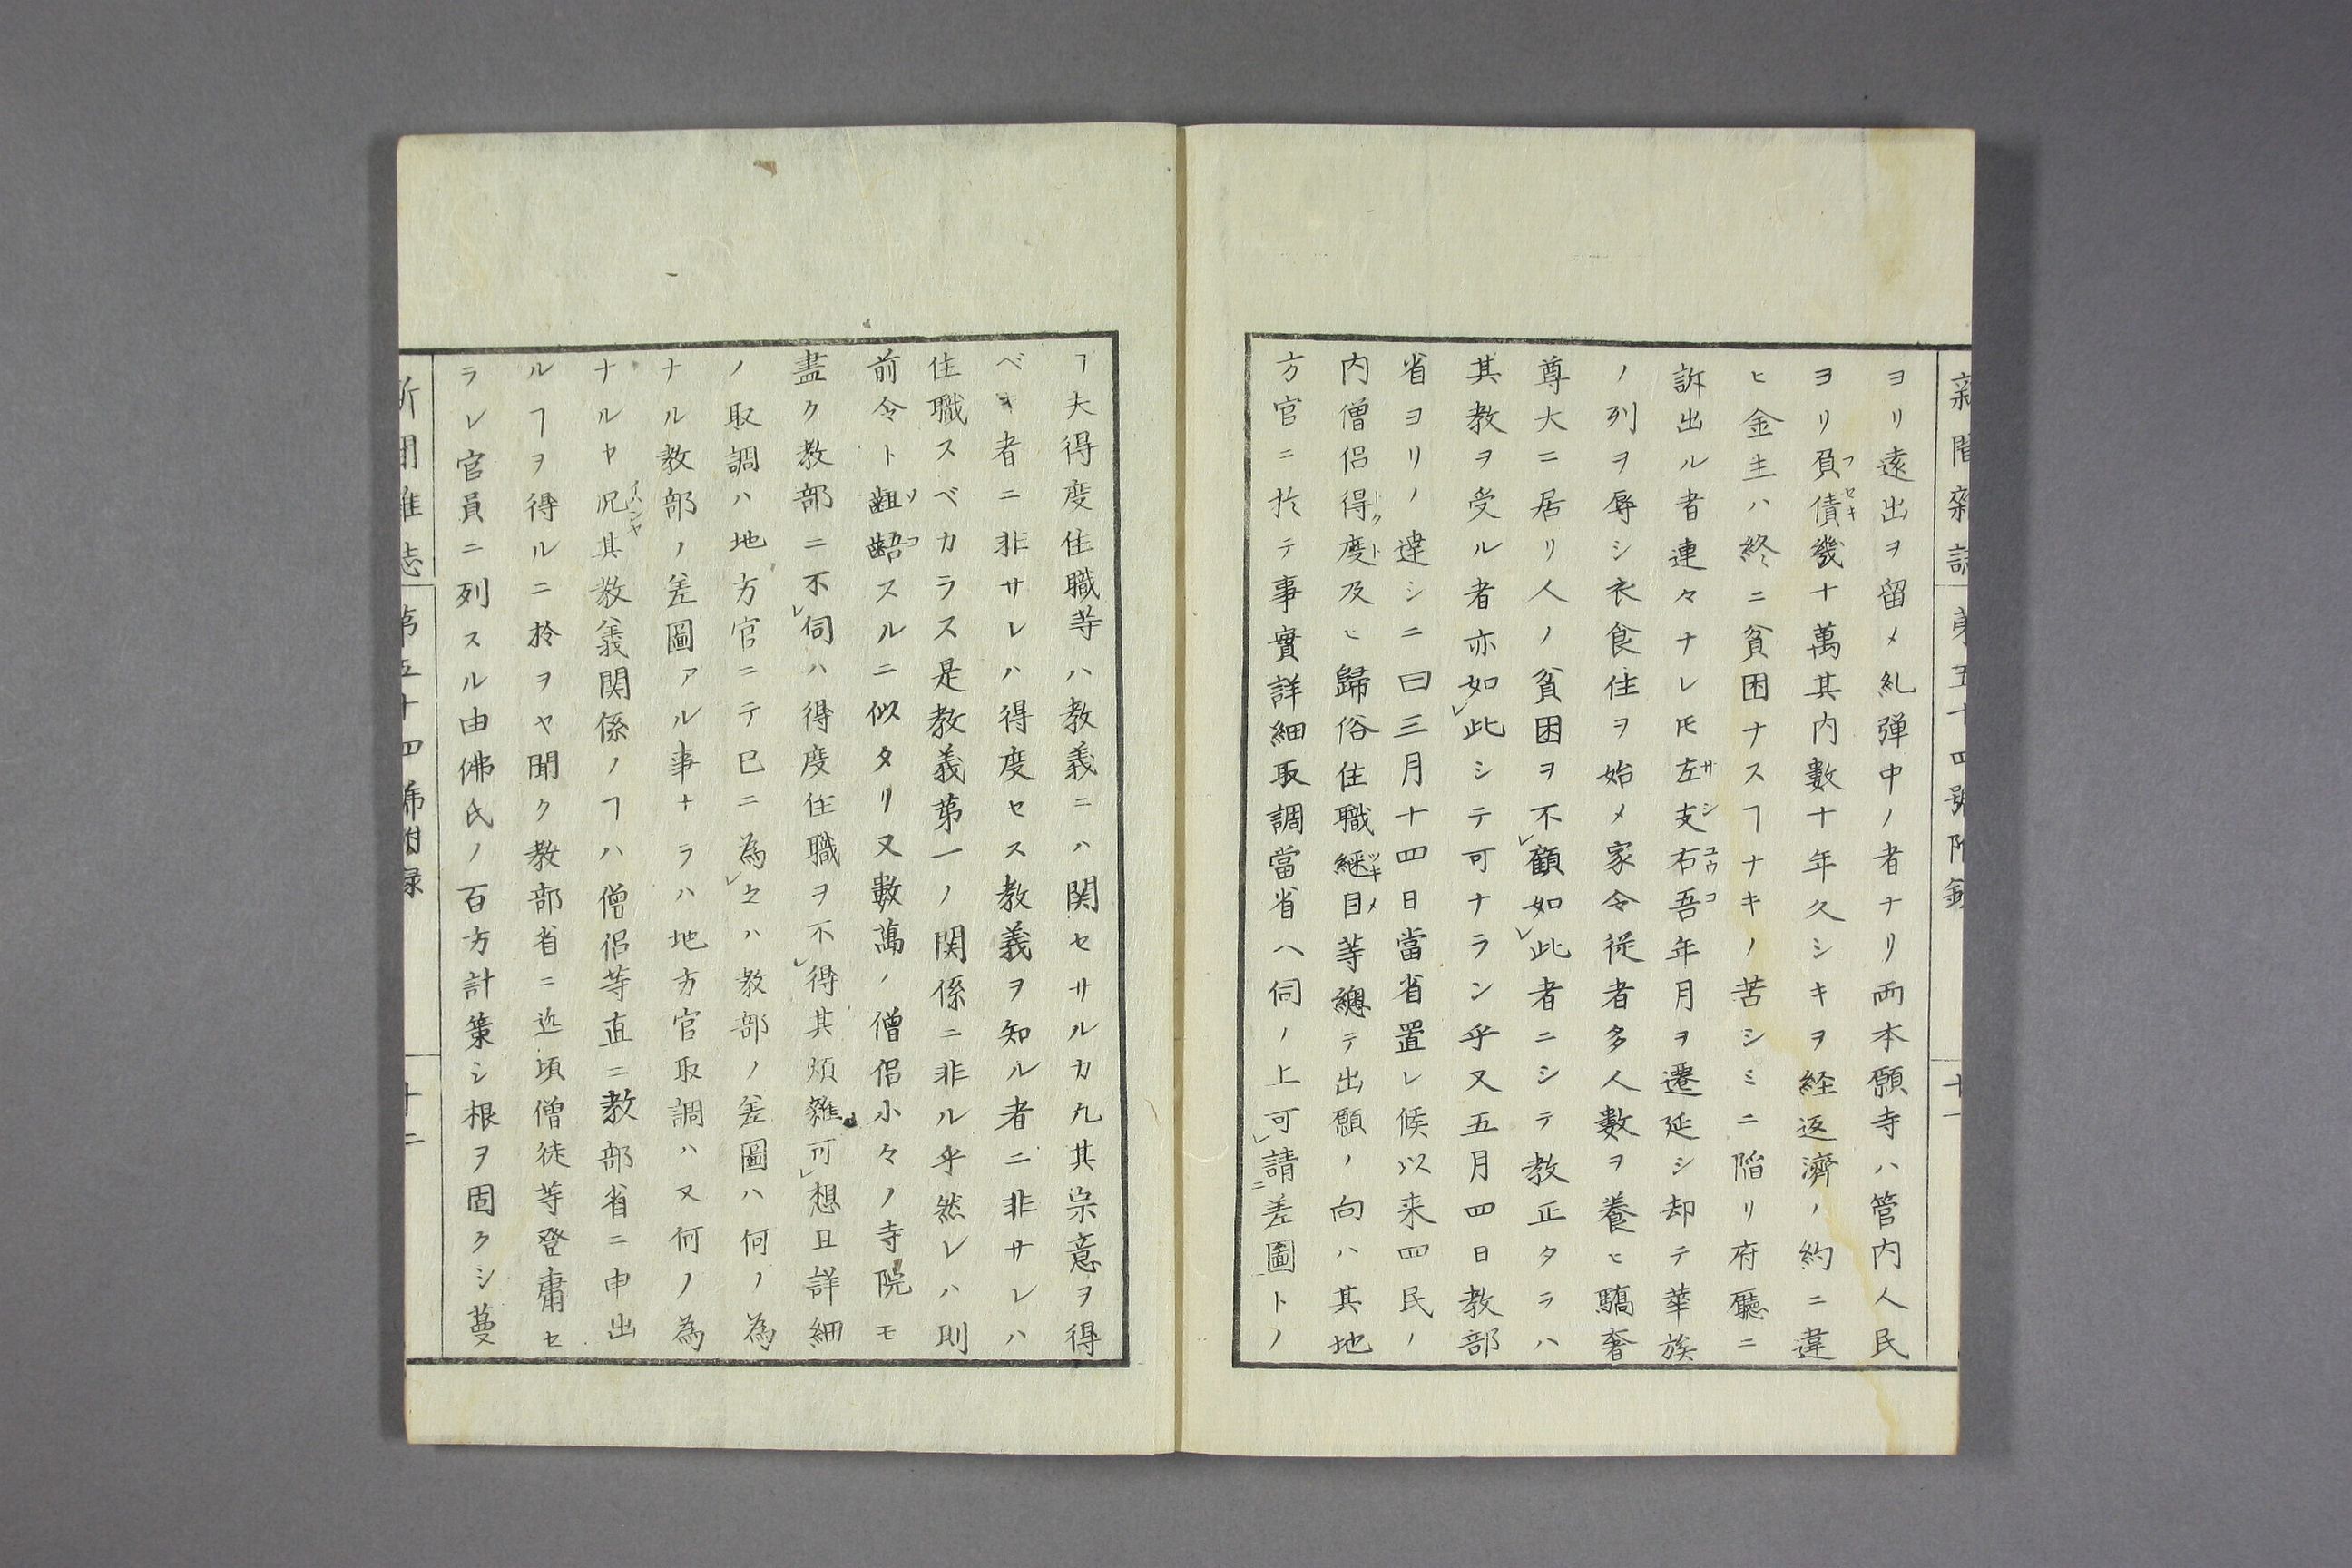 新聞雜誌 第五十四號附錄 十一
ヨリ遠出ヲ留メ糺弾中ノ者ナリ両本願寺ハ管内人民
ヨリ負債幾十萬其内數十年久シキヲ経返濟ノ約ニ違
ヒ金主ハ終ニ貧困ナスヿナキノ苦シミニ陥リ府廳ニ
訴出ル者連々ナレ𪜈左支右吾年月ヲ遷延シ却テ華族
ノ列ヲ辱シ衣食住ヲ始メ家令従者多人數ヲ養ヒ驕奢
尊大ニ居リ人ノ貧困ヲ不レ顧如レ此者ニシテ教正タラハ
其教ヲ受ル者亦如レ此シテ可ナラン乎又五月四日教部
省ヨリノ達シニ曰三月十四日當省置レ候以来四民ノ
内僧侶得度及ヒ歸俗住職継目等總テ出願ノ向ハ其地
方官ニ於テ事實詳細取調當省ヘ伺ノ上可レ請ニ差圖一トノ
ヿ夫得度住職等ハ教義ニハ関セサルカ凡其宗意ヲ得
ベキ者ニ非サレハ得度セス教義ヲ知ル者ニ非サレハ
住職スベカラス是教義第一ノ関係ニ非ル乎然レハ則
前令ト齟齬スルニ似タリ又數萬ノ僧侶小々ノ寺院モ
盡ク教部ニ不レ伺ハ得度住職ヲ不レ得其煩雜可レ想且詳細
ノ取調ハ地方官ニテ已ニ為レ之ハ教部ノ差圖ハ何ノ為
ナル教部ノ差圖アル事ナラハ地方官取調ハ又何ノ為
ナルヤ况其教義関係ノヿハ僧侶等直ニ教部省ニ申出
ルヿヲ得ルニ於ヲヤ聞ク教部省ニ近頃僧徒等登庸セ
ラレ官員ニ列スル由佛氏ノ百方計策シ根ヲ固クシ蔓
新聞雜志 第五十四号附録 十二